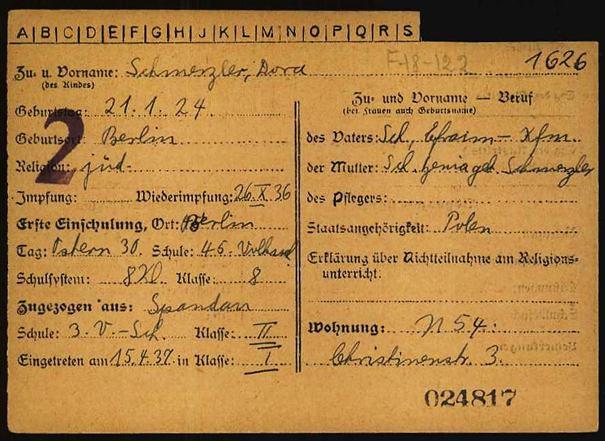 A B C D E F G H J K L M N O P Q R S
F-18-123
1626
Zu- u. Vorname: Schmerzler, Dora
(des Kindes)
Geburtstag: 21.1.24.
Geburtsort: Berlin
2
Religion: jüd.
Impfung: Wiederimpfung: 26.X.36
Erste Einschulung, Ort: Berlin
Tag: Ostern 30. Schule: 46. Volkssch
Schulsystem: Klasse: 8
Zugezogen aus: Spandau
Schule: 3. V.-Sch. Klasse: II
Eingetreten am 15.4.37 in Klasse: I
Zu- und Vorname — Beruf
(bei Frauen auch Geburtsname)
des Vaters: Sch., Efraim – Kfm.
der Mutter: Sch. geb. Schmerzler
des Pflegers:
Staatsangehörigkeit: Polen
Erklärung über Nichtteilnahme am Religions-
unterricht:
Wohnung: N 54.
Christinenstr. 3.
024817